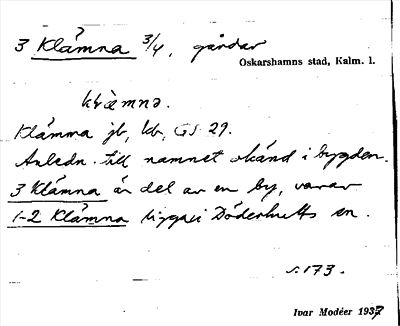 3 Klämna 3/4, gårdar
Oskarshamns stad, Kalm. l.
klæ̀mna.
Klämma jb, kb, GS 29.
Anledn. till namnet okänd i bygden.
3 Klämna är del av en by, varav
1-2 Klämna ligga i Döderhults sn.
s. 173.
Ivar Modéer 1937